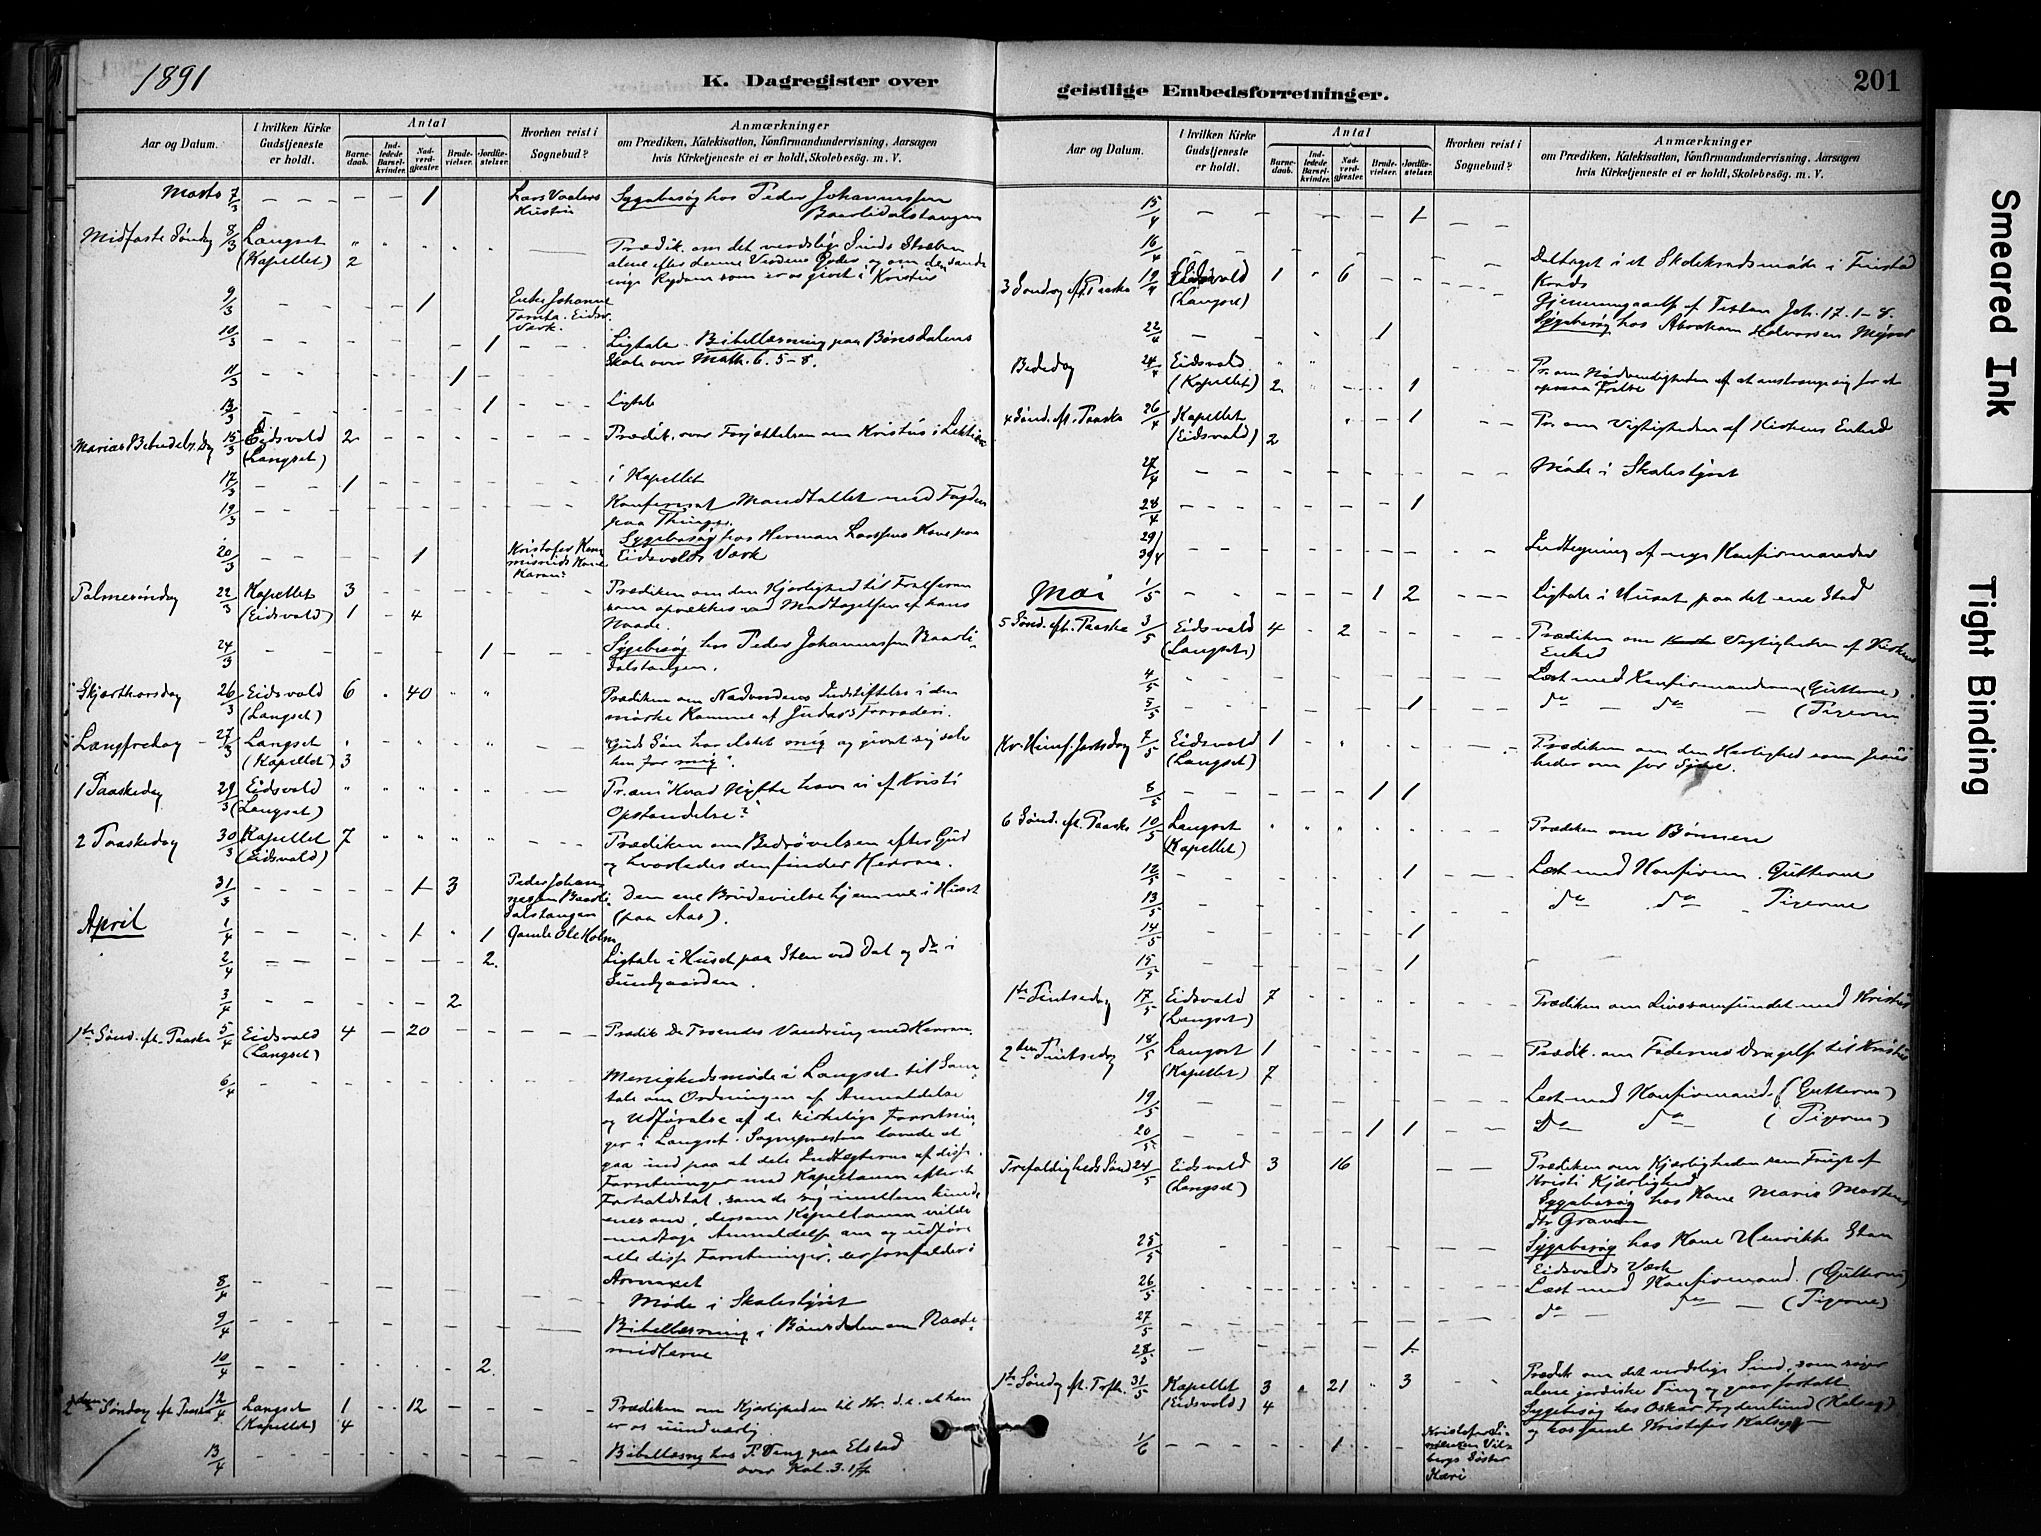 1891
K. Dagregister over
Aar og Datum.
I hvilken Kirke Gudstjeneste er holdt.
Antal
Barnedaab.
Indledede Barselkvinder.
Nadverdgjester.
Brudevielser.
Jordfæstelser.
Hvorhen reist i Sognebud?
Anmærkninger
om Prædiken, Katekisation, Konfirmandundervisning, Aarsagen
hvis Kirketjeneste ei er holdt, Skolebesøg. m. V.
Marts 7/3 – – – – 1 Lars Vaalers Sygebesøg hos Peder Johannessen
Kristin Baarlidalstangen
Midfaste Søndag 8/3 Langset Prædik. om det verdslige Sinds Stræben
(Kapellet) 2 alene efter denne Verdens Goder og om den sande
evige Rigdom som er os givet i Kristus
9/3 – – 1 Enke Johanne
Tomta. Eidsv.
Værk.
10/3 – – 1 Ligtale. Bibellæsning paa Bønsdalens
Skole over Math. 6. 5–8.
11/3 – – 1
13/3 – – 1 Ligtale
Marias Bebudelsdag 15/3 Eidsvold 2 Prædik. over Forjættelsen om Kristus i Lektien
(Langset)
17/3 – – 1 i Kapellet
19/3 Konfereret Mandtallet med Fogden
paa Thinget.
20/3 – – 1 Kristofer Sygebesøg hos Herman Larssens Kone paa
Kone Eidsvolds Værk
Karen?
Palmesøndag 22/3 Kapellet 3 Prædiken om den Kjærlighed til Frelseren
(Eidsvold) 1 – 4 som opvækkes ved Modtagelsen af hans
Naade.
24/3 – – 1 Sygebesøg hos Peder Johannessen Baarli-
dalstangen.
Skjærthorsdag 26/3 Eidsvold 6 40 Prædiken om Nadverdens Indstiftelse i den
(Langset) mørke Ramme af Judas's Forræderi.
Langfredag 27/3 Langset "Guds Søn har elsket mig og givet sig selv
(Kapellet) 3 hen for mig".
1 Paaskedag 29/3 Eidsvold Pr. om "Hvad Nytte have vi af Kristi
(Langset) Opstandelse?"
2 Paaskedag 30/3 Kapellet 7 Prædiken om Bedrøvelsen efter Gud
(Eidsvold) og hvorledes den finder Herren.
31/3 – – 1 3 Peder Johan- Den ene Brudevielse hjemme i Huset
nessen Baarli- (paa Aas).
dalstangen
April 1/4 – – 1 1 Gamle Ole Holm
2/4 – – 2. Ligtale i Huset paa Sten ved Dal og do i
Sundgaarden.
3/4 – – 2
1ste Sønd. eft. Paaske 5/4 Eidsvold 4 – 20 Prædik De Troendes Vandring med Herren.
(Langset)
6/4 Menighedsmøde i Langset til Sam-
tale om Ordningen af Anmeldelse
og Udførelse af de kirkelige Forretnin-
ger i Langset. Sognepresten lovede at
gaa ind paa at dele Indtægterne af disse
Forretninger med Kapellanen efter et
Forhold, som de sig imellem kunde
enes om, dersom Kapellanen vilde
modtage Anmeldelse om og udføre
alle disse Forretninger, der forefalder i
Annexet
8/4 Møde i Skolestyret
9/4 Bibellæsning i Bønsdalen om Naade-
midlerne
10/4 – – 2.
2den Søndag eft. Paaske 12/4 Langset 1 12 Prædiken om Kjærligheden til Kr. d.e. at han
(Kapellet) 4 er os uundværlig
13/4 Bibellæsng hos P. Ting paa Elstad
over Kol. 3. 1 ff
geistlige Embedsforretninger.
201
Aar og Datum.
I hvilken Kirke Gudstjeneste er holdt.
Antal
Barnedaab.
Indledede Barselkvinder.
Nadverdgjester.
Brudevielser.
Jordfæstelser.
Hvorhen reist i Sognebud?
Anmærkninger
om Prædiken, Katekisation, Konfirmandundervisning, Aarsagen
hvis Kirketjeneste ei er holdt, Skolebesøg. m. V.
15/4 – – 1
16/4 Deltaget i et Skolekredsmøde i Finstad
Kreds
3 Søndag eft. Paaske 19/4 Eidsvold 1 6 Gjennemgaaelse af Texten Joh. 17. 1–8.
(Langset) Sygebesøg hos Abraham Halvorsen
22/4 – – 1
Bededag 24/4 Eidsvold Pr. om Nødvendigheden af at anstrænge sig for at
(Kapellet) 2 1 opnaa Frelse
4 Sønd. eft. Paaske 26/4 Kapellet – 1 Pr. om Vigtigheden af Kirkens Enhed
(Eidsvold) 2
27/4 Møde i Skolestyret
28/4 – – 1
29/ 30/4 Indtegning af nye Konfirmander
Mai 1/5 – – 1 2 Ligtale i Huset paa det ene Sted
5 Sønd. eft. Paaske 3/5 Eidsvold 4 – 2 Prædiken om Vigtigheden af Kirkens
(Langset) Enhed
4/5 Læst med Konfirmanderne (Gutterne).
5/5 – – 1 do – do – (Pigerne
Kr. Himf.artsdag 7/5 Eidsvold 1 Prædiken om den Herlighed som Jesus
(Langset) beder om for sine.
8/5 – – 1 1
6 Sønd. eft. Paaske 10/5 Langset Prædiken om Bønnen
(Kapellet)
12/5 – – 1 Læst med Konfirm. Gutterne
13/5 do do Pigerne
14/5 – – 1
15/5 – – 1
1ste Pintsedag 17/5 Eidsvold 7 Prædiken om Livssamfundet med Kristus
(Langset)
2den Pintsedag 18/5 Langset 1 Prædik. om Faderens Dragelse til Kristus
(Kapellet) 7
19/5 Læst med Konfirmand. (Gutterne)
20/5 – – 1 1 Do do (Pigerne)
Trefoldigheds Sønd 24/5 Eidsvold 3 16 Prædiken om Kjærligheden som Frugt af
(Langset) Kristi Kjærlighed
Sygebesøg hos Kone Marie
25/5 Sygebesøg hos Kone Henrikke Sten
Eidsvolds Værk
26/5 Læst med Konfirmand. (Gutterne)
27/5 do – do – (Pigerne)
28/5 – – 1
1ste Søndag eft. Trefh. 31/5 Kapellet 3 21 3 Prædik om det verdslige Sind, som søger
(Eidsvold) 4 alene jordiske Ting og gaar fortabt
Sygebesøg hos Oskar Frydenlund (Kalseg)
og hos gamle Kristofer Kalseg
1/6 – – 1 Kristofer Si-
Vil-
bergs Søster
Kari
Smeared Ink
Tight Binding